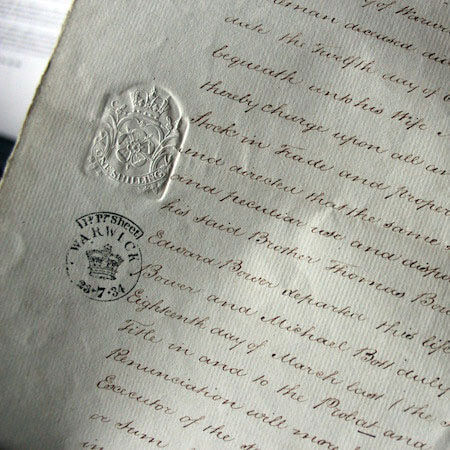 of Warw
man deceased du
date the Twelfth day of
bequeath unto his Wife
thereby charge upon all an
Stock in Trade and proper
and directed that the same
and peculiar use and dispo
his said Brother Thomas Bow
Edward Bower departed this life
Bower and Michael Bott duly
Eighteenth day of March last (the s
Title in and to the Probat and
Renunciation will more
Executor of the s
or sum
in
ONE SHILLING
Pr Sheet
WARWICK
25·7·34